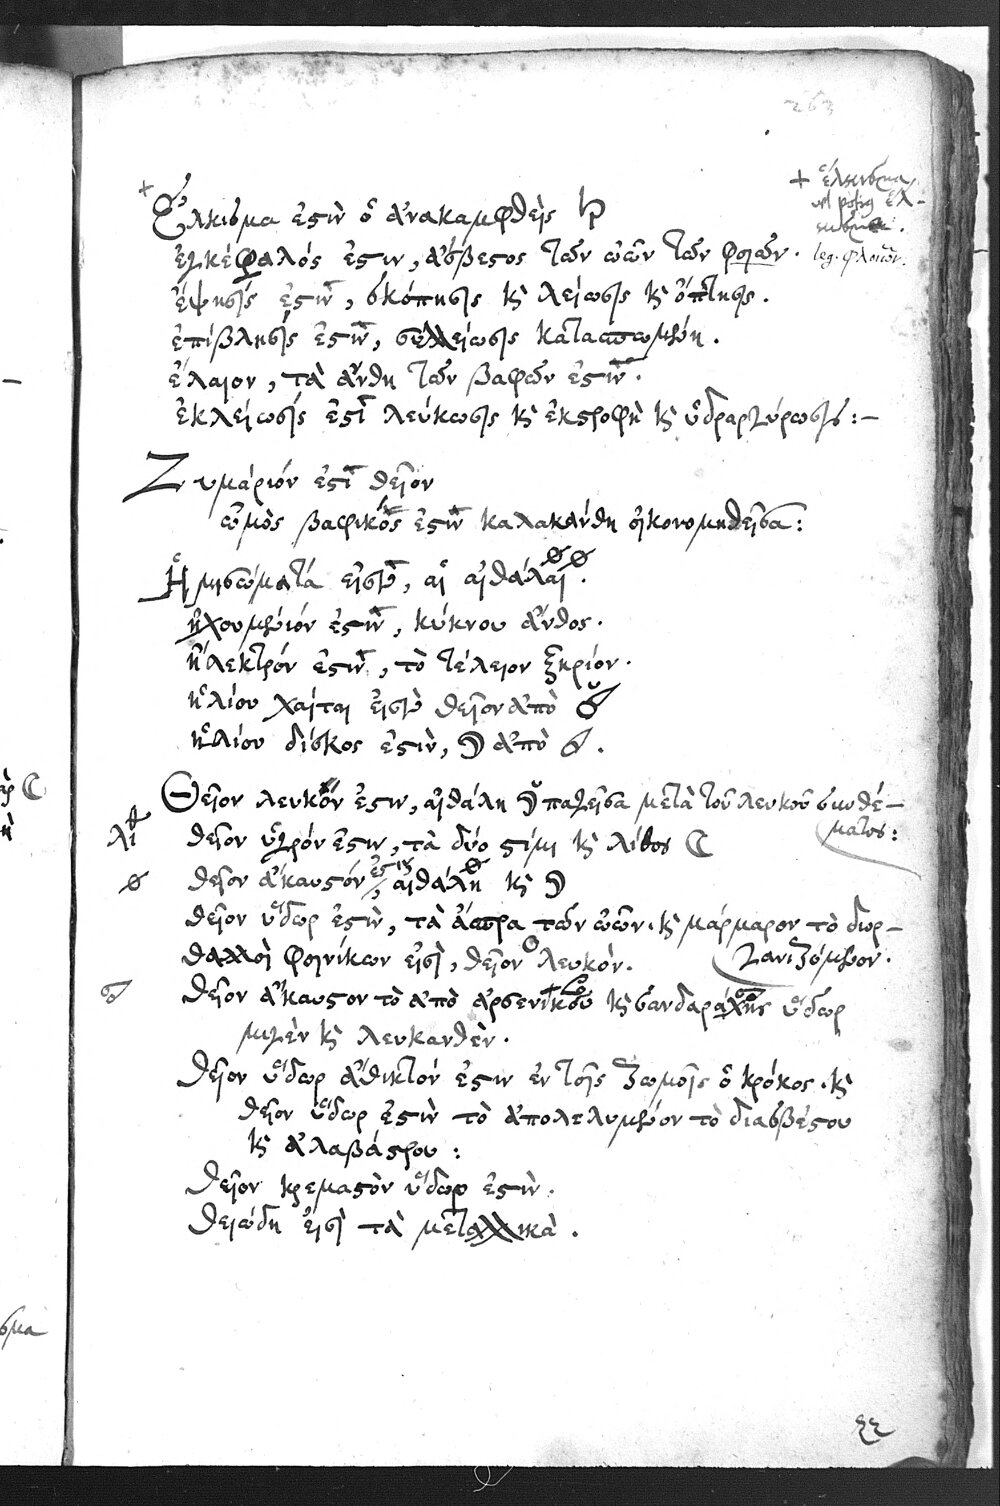 263
+ Ἕλκυσμα ἐστὶν ὁ ἀνακαμφθεὶς ♄
ἐγκέφαλός ἐστιν, ἄσβεστος τῶν ὠῶν τῶν φοιῶν.
ἕψησίς ἐστιν, σκόπησις κ λείωσις κ ὄπτησις.
ἐπίβλησίς ἐστιν, λείωσις
ἔλαιον, τὰ ἄνθη τῶν βαφῶν ἐστιν.
ἐκλείωσίς ἐστι λεύκωσις κ ἐκστροφὴ κ ὑδραργύρωσις:—
Ζυμάριόν ἐστι θεῖον
ὠμὸς βαφικός ἐστιν καλακάνθη οἰκονομηθεῖσα:
Ἡμισώματά εἰσιν, αἱ αἰθάλαι.
ἠχουμένιόν ἐστιν, κύκνου ἄνθος.
ἤλεκτρόν ἐστιν, τὸ τέλειον ξηρίον.
ἡλίου χαῖται εἰσὶν θεῖον ἀπὸ
ἡλίου δίσκος ἐστὶν, ☽ ἀπὸ
Θεῖον λευκόν ἐστιν, αἰθάλη ☽ παγεῖσα μετὰ τοῦ λευκοῦ συνθέ—
ματος:
θεῖον ὑγρόν ἐστιν, τὰ δύο στίμι κ λίθος ☾
θεῖον ἄκαυστόν ἐστιν, αἰθάλη κ ☽
θεῖον ὕδωρ ἐστὶν, τὰ ἄσπρα τῶν ὠῶν. κ μάρμαρον τὸ διορ—
γανιζόμενον.
θαλλοὶ φοινίκων εἰσὶ, θεῖον λευκὸν.
θεῖον ἄκαυστον τὸ ἀπὸ ἀρσενίκου κ σανδαράχης ὕδωρ
μιγὲν κ λευκανθὲν.
θεῖον ὕδωρ ἄθικτόν ἐστιν ἐν τοῖς ζωμοῖς ὁ κρόκος. κ
θεῖον ὕδωρ ἐστὶν τὸ ἀπολελυμένον τὸ διασβέστου
κ ἀλαβάστρου:
θεῖον κρεμαστὸν ὕδωρ ἐστὶν.
θειώδη εἰσὶ τὰ μεταλλικὰ.
+ ἕλκυσμα
leg. φλοιῶν.